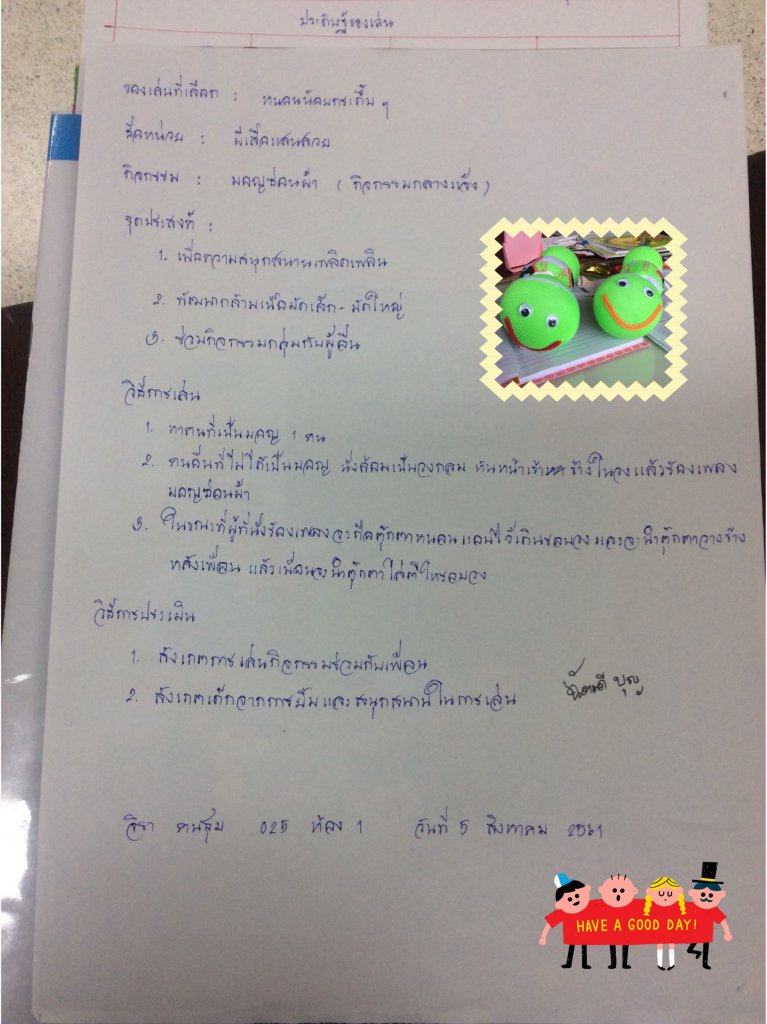 ประดิษฐ์ของเล่น
ของเล่นที่เลือก : หนอนน้อยกระดึ๊บ ๆ
ชื่อหน่วย : ผีเสื้อแสนสวย
กิจกรรม : มอญซ่อนผ้า ( กิจกรรมกลางแจ้ง )
จุดประสงค์ :
1. เพื่อความสนุกสนานเพลิดเพลิน
2. พัฒนากล้ามเนื้อมัดเล็ก - มัดใหญ่
3. ร่วมกิจกรรมกลุ่มกับผู้อื่น
วิธีการเล่น
1. หาคนที่เป็นมอญ 1 คน
2. คนอื่นที่ไม่ได้เป็นมอญ นั่งล้อมเป็นวงกลม หันหน้าเข้าหา ข้างในวงแล้วร้องเพลง
มอญซ่อนผ้า
3. ในขณะที่ผู้ที่นั่งร้องเพลงจะถือตุ๊กตาหนอน เดินรอบวง และจะนำตุ๊กตาวางข้าง
หลังเพื่อน แล้วเพื่อนจะนำตุ๊กตาไล่ตีให้รอบวง
วิธีการประเมิน
1. สังเกตการเล่นกิจกรรมร่วมกับเพื่อน
2. สังเกตเด็กจากการยิ้มและสนุกสนานในการเล่น
025 ห้อง 1 วันที่ 5 สิงหาคม 2561
HAVE A GOOD DAY!